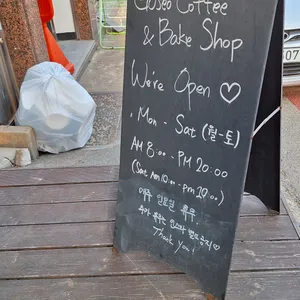 Closed Coffee
& Bake Shop
We're Open ♡
Mon - Sat (월-토)
AM 8:00 - PM 20:00
(Sat AM 10:00 - PM 20:00)
매주 일요일 휴무
추가 휴무는 인스타 별도공지♡
Thank you!
07